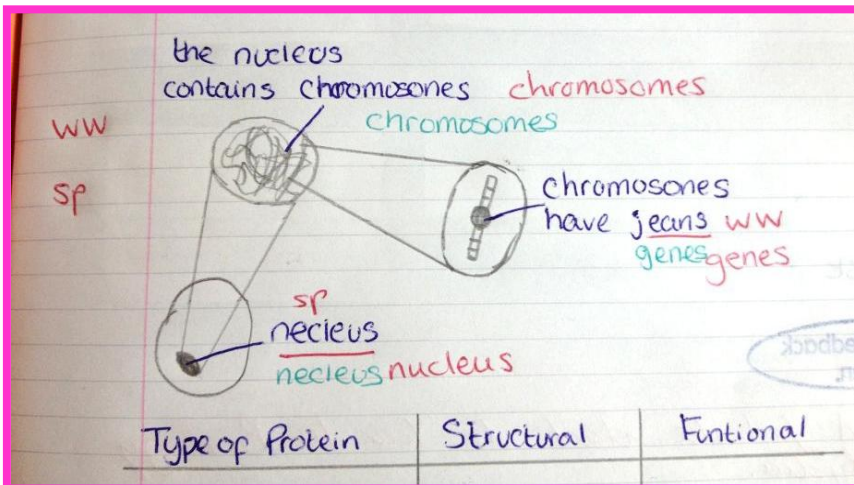 the nucleus
contains chromosones chromosomes
chromosomes
ww
sp
chromosones
have jeans ww
genes genes
sp
necleus
necleus nucleus
Type of Protein Structural Funtional